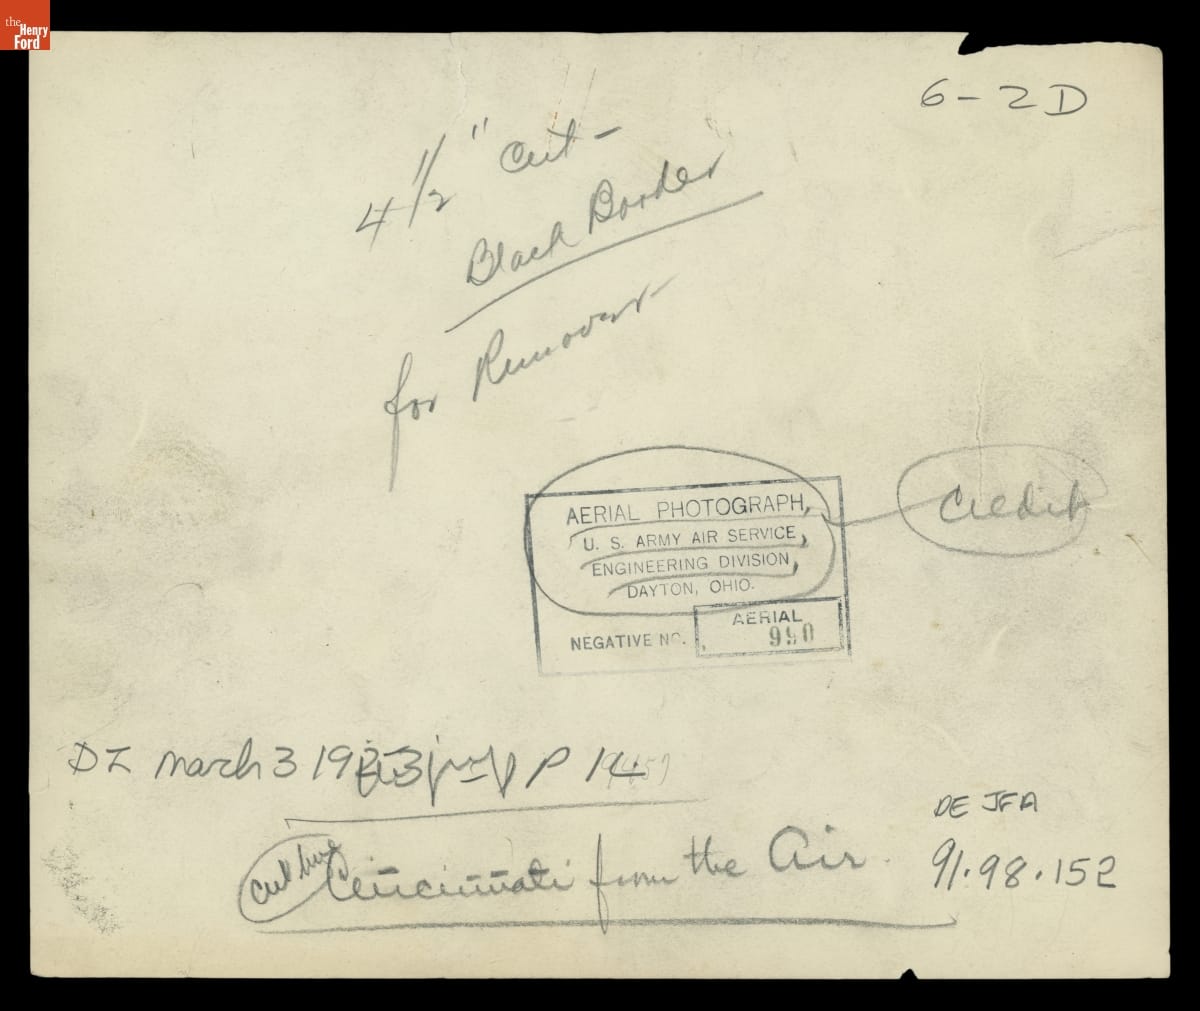 the
Henry
Ford
6-2D
4 1/2" Cut -
Black Border
for
AERIAL PHOTOGRAPH,
U. S. ARMY AIR SERVICE,
ENGINEERING DIVISION,
DAYTON, OHIO.
NEGATIVE NO. AERIAL
990
Credit
March 3 19 P 14
DE JFA
cut line
Cincinnati from the Air
91.98.152